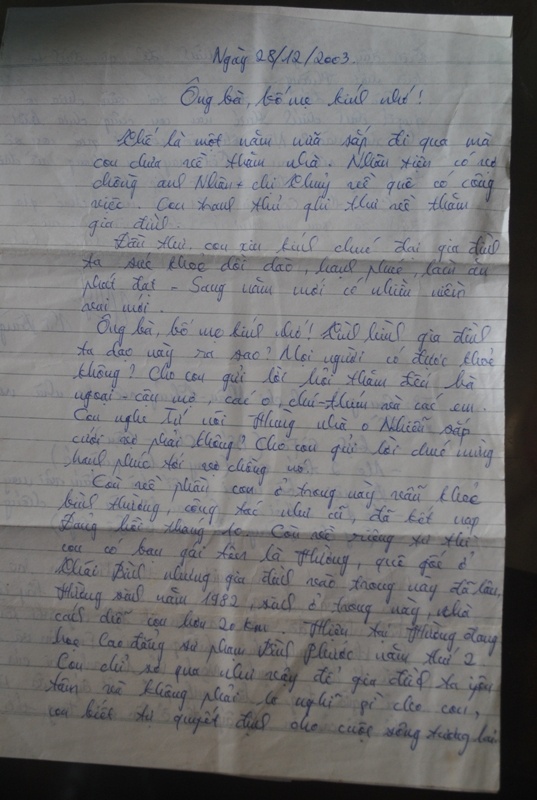 Ngày 28/12/2003.
Ông bà, bố mẹ kính nhớ!
Thế là một năm nữa sắp đi qua mà
con chưa về thăm nhà. Nhân tiện có vợ
chồng anh Nhân + chị Thuỷ về quê có công
việc. Con tranh thủ ghi thư về thăm
gia đình.
Đầu thư, con xin kính chúc đại gia đình
ta sức khoẻ dồi dào, hạnh phúc, làm ăn
phát đạt - Sang năm mới có nhiều niềm
vui mới.
Ông bà, bố mẹ kính nhớ! Tình hình gia đình
ta dạo này ra sao? Mọi người có được khoẻ
không? Cho con gửi lời hỏi thăm đến bà
ngoại - cậu mợ, các o chú - thím và các em.
Con nghe Tú nói Thường nhà o Nhiễu sắp
cưới vợ phải không? Cho con gửi lời chúc mừng
hạnh phúc tới vợ chồng nó.
Còn về phần con ở trong này vẫn khoẻ
bình thường, công tác như cũ, đã kết nạp
Đảng hồi tháng 10. Còn về riêng tư thì
con có bạn gái tên là Hường, quê gốc ở
Thái Bình nhưng gia đình vào trong này đã lâu,
Hường sinh năm 1982, sinh ở trong này, nhà
cách chỗ con hơn 20 km. Hiện tại Hường đang
học Cao đẳng sư phạm Bình Phước năm thứ 2
Con chỉ sơ qua như vậy để gia đình ta yên
tâm và không phải lo nghĩ gì cho con,
con biết tự quyết định cho cuộc sống tương lai